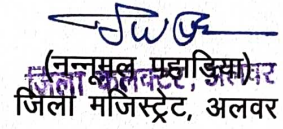 (नन्नूमल पहाड़िया)
जिला कलक्टर, अलवर
जिला मजिस्ट्रेट, अलवर